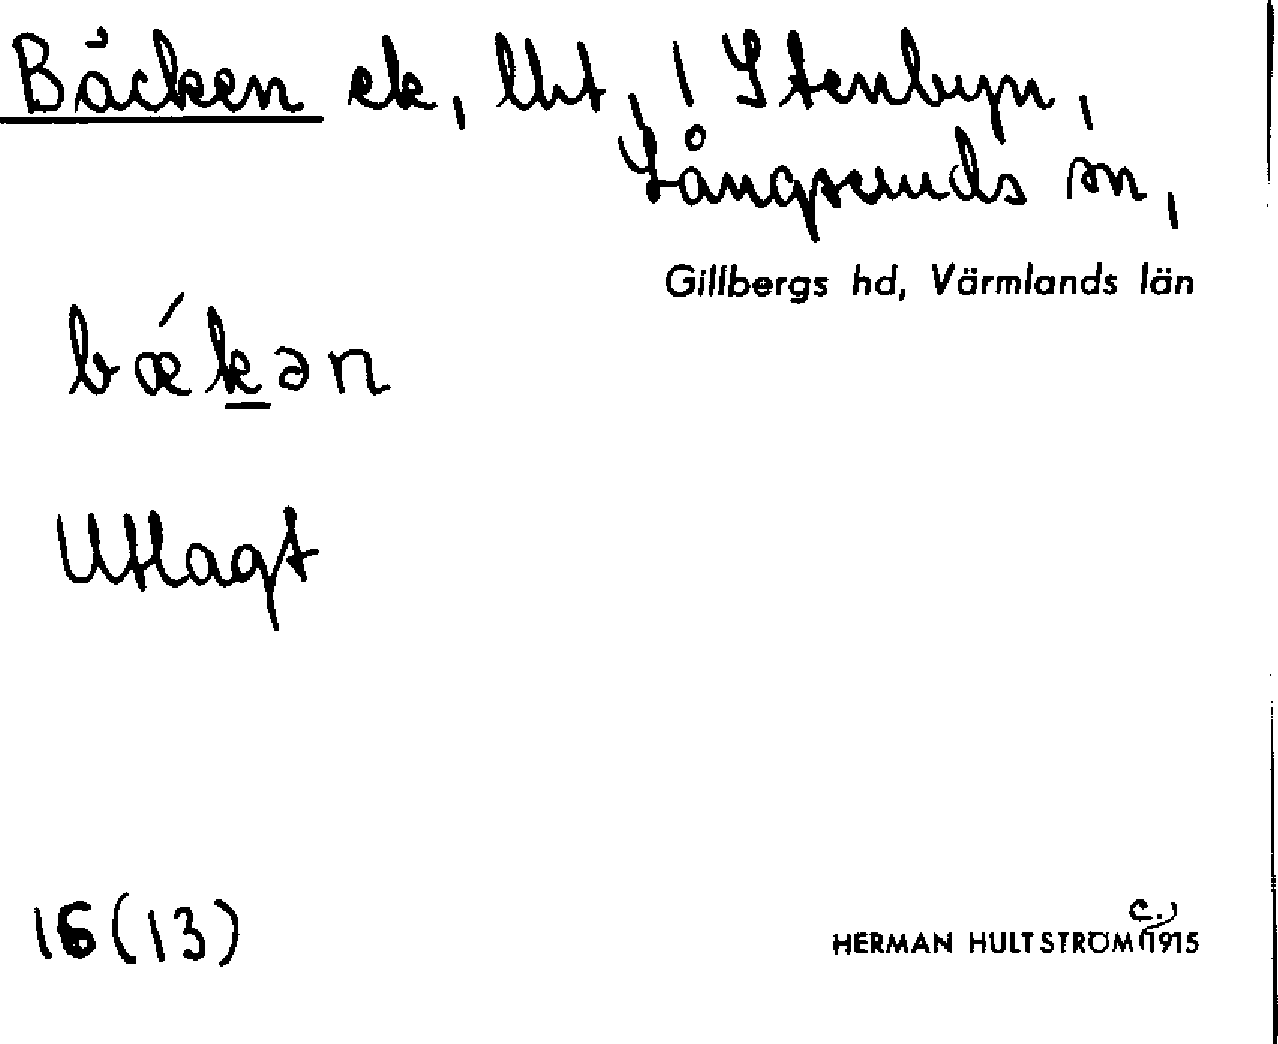 Bäcken ek, lht, i Stenbyn,
Långseruds sn,
Gillbergs hd, Värmlands län
bǽk̲ən
Utlagt
16(13)
HERMAN HULTSTRÖM (c. 1915